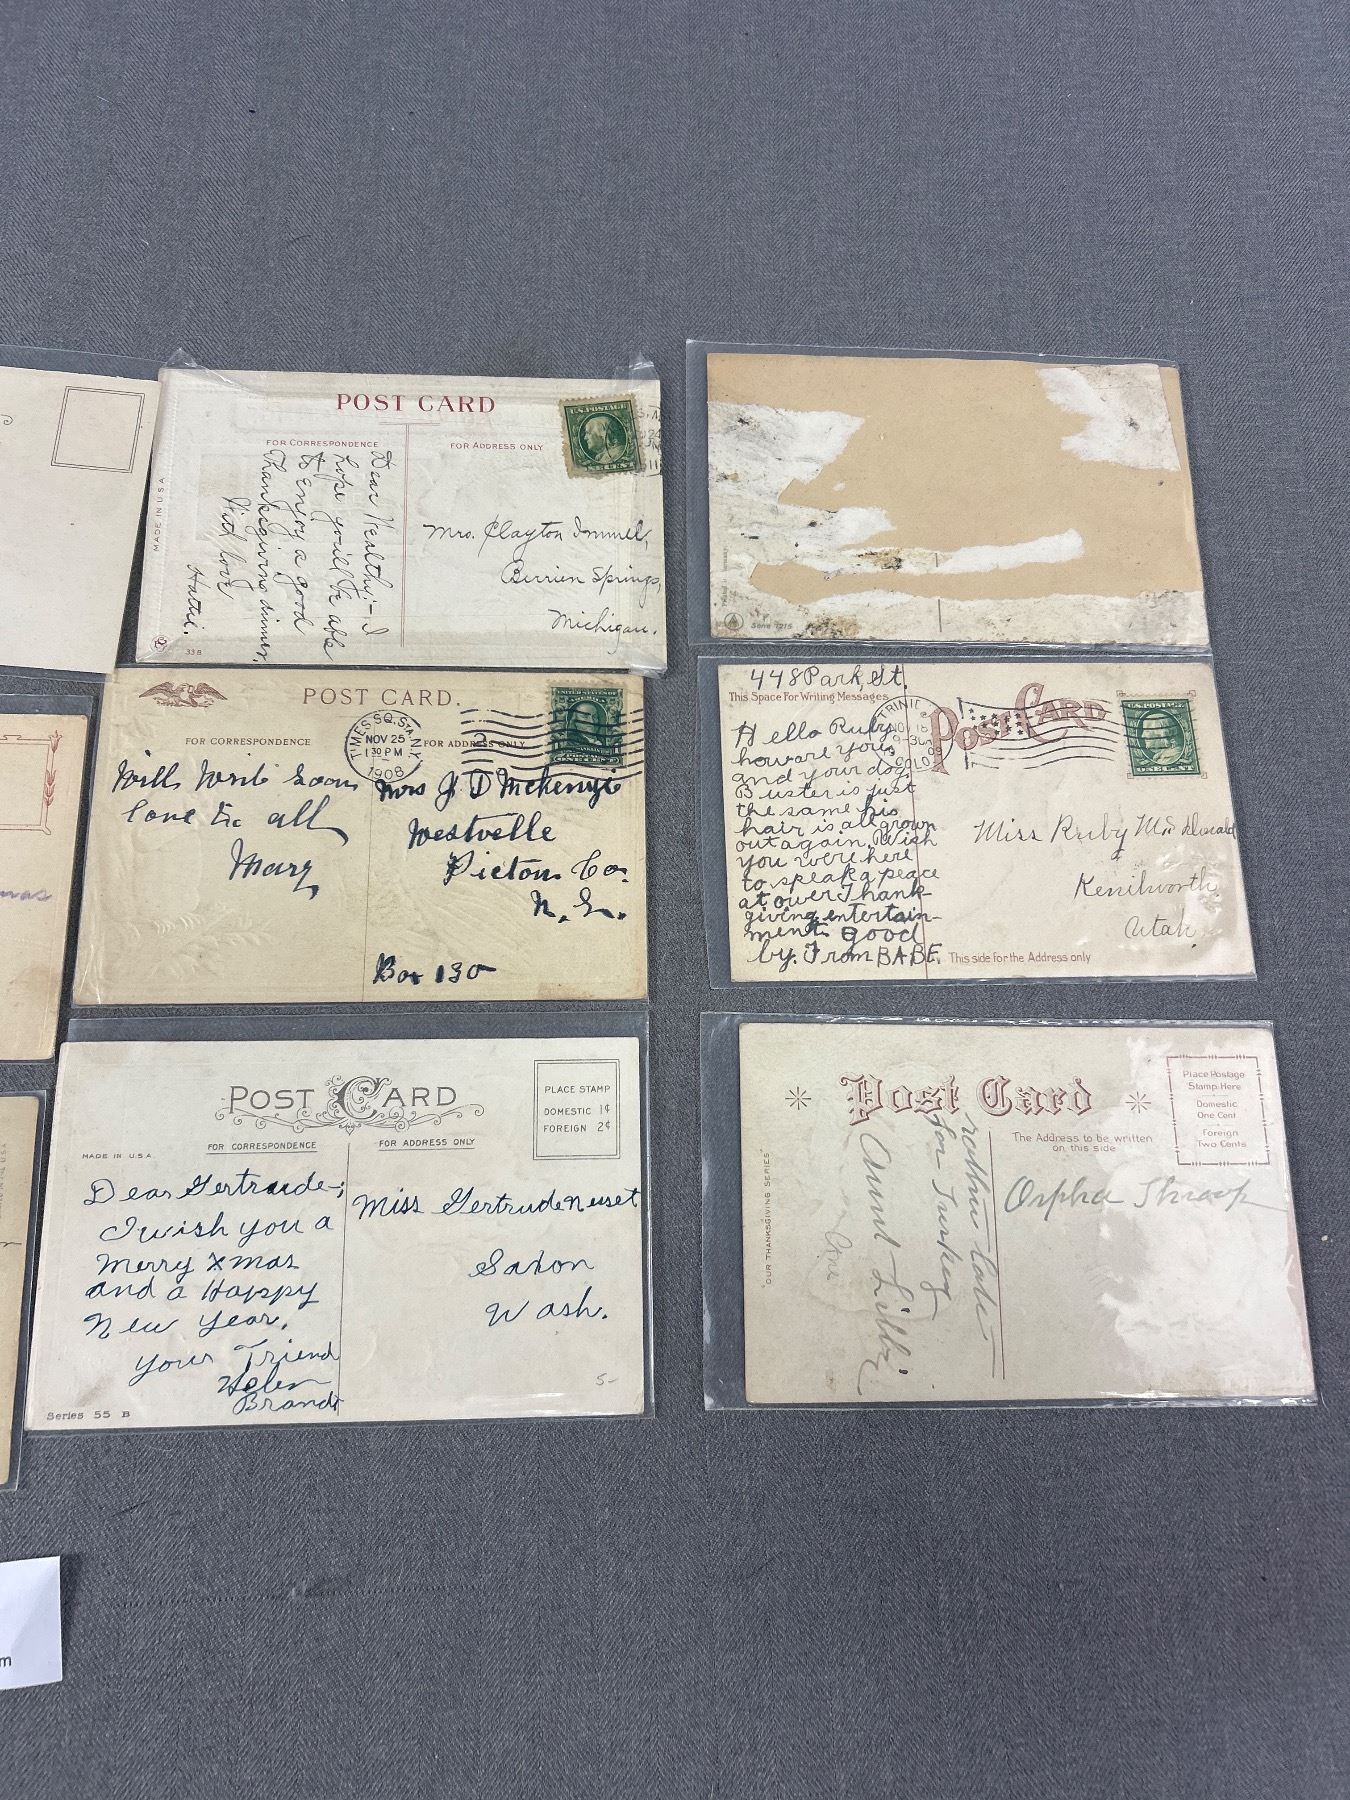 POST CARD
FOR CORRESPONDENCE
FOR ADDRESS ONLY
U.S. POSTAGE
MADE IN U.S.A
33 B
Dear Healthy:- I
hope you'll be able
to Enjoy a good
Thanksgiving dinner.
With love
Hattie.
Mrs. Clayton Immel,
Berrien Springs,
Michigan.
POST CARD.
FOR CORRESPONDENCE
FOR ADDRESS ONLY
TIMES SQ. STA. N.Y.
NOV 25
1 30 PM
1908
2
ONE CENT
Will Write Soon
love to all
Mary
Mrs J D McKenzie
Westville
Pictou Co.
N. S.
Box 130
POST CARD
PLACE STAMP
DOMESTIC 1¢
FOREIGN 2¢
FOR CORRESPONDENCE
FOR ADDRESS ONLY
MADE IN U.S.A.
Dear Gertrude;
I wish you a
Merry Xmas
and a Happy
New Year.
your Friend
Helen
Brandt
Miss Gertrude
Wash.
5-
Series 55 B
Serie 7215
448 Park, St.
This Space For Writing Messages
POST CARD
U.S. POSTAGE
ONE CENT
NOV 16
COLO
Hello Ruby
how are you,
and your dog
Buster is just
the same his
hair is all grown
out again. Wish
you were here
to speak a peace
at ower Thank-
giving entertain-
ment. Good
by. From BABE.
Miss Ruby McDonald
Kenilworth
Utah
This side for the Address only
Post Card
Place Postage
Stamp Here
Domestic
One Cent
Foreign
Two Cents
The Address to be written
on this side
"OUR THANKSGIVING SERIES"
for Turkey
Aunt Libbi
Orpha
m